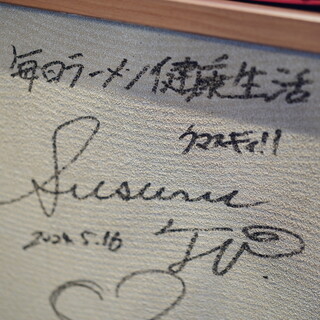 毎日ラーメン健康生活
ウマスギィ!!
Susuru
TV.
2024.5.16